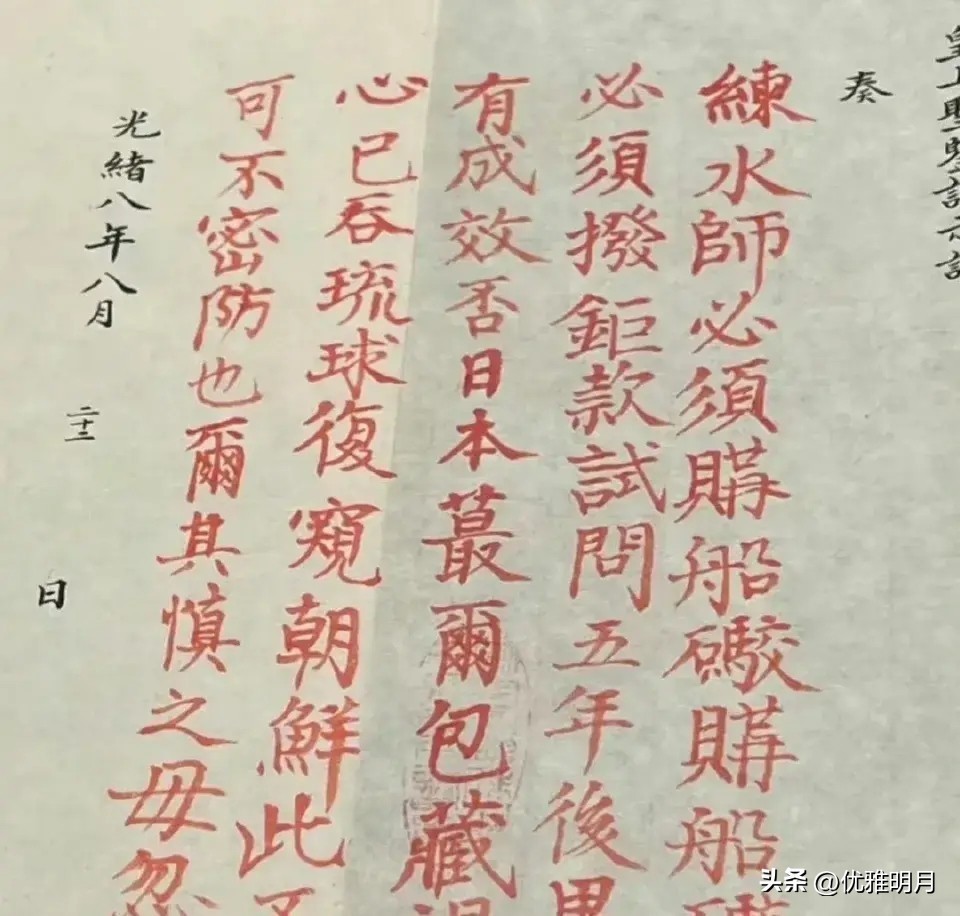 皇上聖鑒訓示謹
奏
練水師必須購船礮購船礮
必須撥鉅款試問五年後果
有成效否日本蕞爾包藏禍
心已吞琉球復窺朝鮮此不
可不密防也爾其慎之毋忽
光緒八年八月
二十二
日
头条 @优雅明月